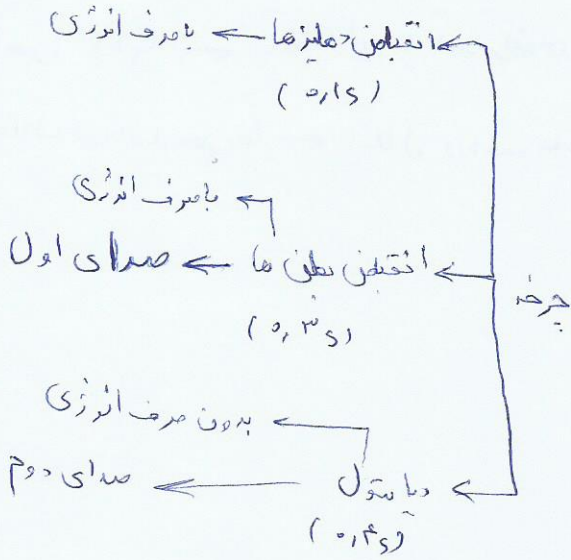 انقباض دهلیزها ← با صرف انرژی
(۰,۱s)
با صرف انرژی
انقباض بطن ها ← صدای اول
(۰,۳s)
چرخه
بدون صرف انرژی
دیاستول ← صدای دوم
(۰,۴s)